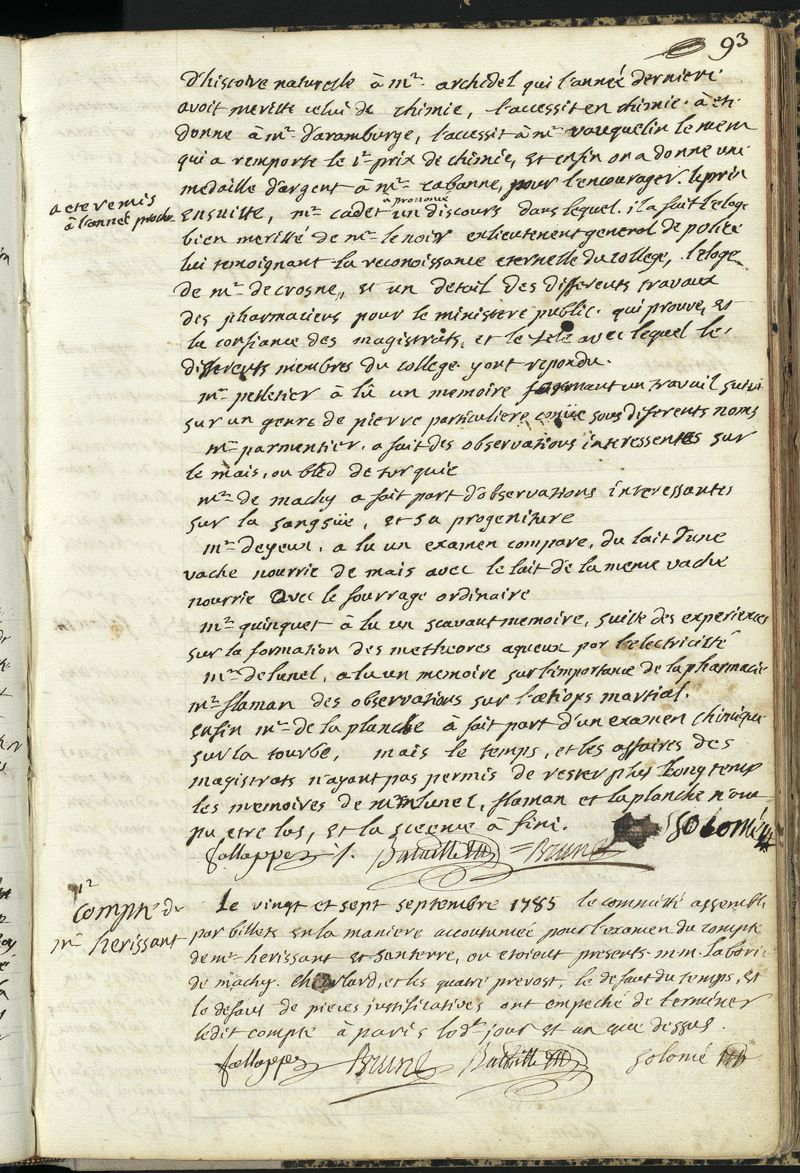 93
d'histoire naturelle à mr. archidel qui l'année derniere
avoit meritté celui de chimie, l'accessit en chimie. à eté
donne à mr. d'aramburge, l'accessit à mr. vauquelin le mem
qui a remporte le 1r prix de chimie, et enfin on a donne une
medaille d'argent à mr. cabanne, pour l'encourager. le prix
a ete remis
à l'année proch.
ensuitte, mr. cadet à prononce un discours dans lequel. il a fait l'eloge
bien merité de mr. le noir ex lieutenent general de police
lui temoignant la reconoissance eternelle du college, l'eloge
de mr. de crosne, et un detail des differents travaux
des pharmaciens pour le ministere public. qui prouve, et
la confiance des magistrats, et le zele avec lequel les
differents membres du college y ont repondu.
mr. pelletier à lû un memoire formant un travail suivi
sur un genre de pierre particuliere conüe sous differents noms
mr. parmentier. a fait des observations interessentes sur
le mais, ou bled de turquie
mr. de machy a fait part d'observations interessantes
sur la sangsüe, et sa progeniture
mr. deyeux. a lu un examen compare, du lait d'une
vache nourrie de mais avec le lait de la meme vache
nourrie avec le fourrage ordinaire
mr. quinquet à lû un scavant memoire, suitte des experiences
sur la formation des metheores aqueux par l'electricitté
mr. delunel, a lu un memoire sur l'importance de la pharmacie
mr. slaman des observations sur l'ætiops martial.
enfin mr. de la planche à fait part d'un examen chimique
sur la tourbe, mais le temps, et les affaires des
magistrats n'ayant pas permis de rester plus long temp
les memoires de mrs. lunel, slaman et la planche n'ont
pu etre lus, et la sceence à fini.
solomé
fallappez Bataille Brune
compte de
mr. herissant
Le vingt et sept septembre 1785 le committé assemblé
par billets en la maniere accoutumée pour l'examen du compte
de mr. herissant et santerre, ou etoient presents m.m. laborie
de machy. cheralard, et les quatre prevost, le defaut du temps, et
le defaus de pieces justificatives ont empeché de terminer
ledit compte à paris led. jour et an que dessus.
fallappez Brune Bataille solomé